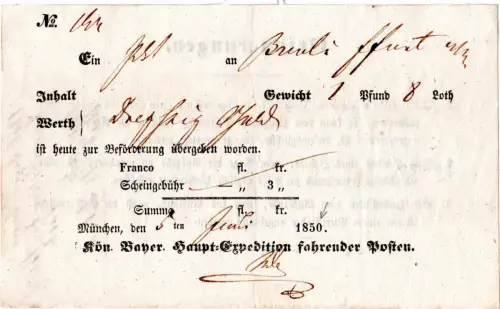 №.
Ein an
Inhalt Gewicht 1 Pfund 8 Loth
Werth Dreyßig Guld
ist heute zur Beförderung übergeben worden.
Franco fl. kr.
Scheingebühr — „ 3 „
Summe fl. kr.
München, den 5 ten Juni 1850.
Kön. Bayer. Haupt-Expedition fahrender Posten.